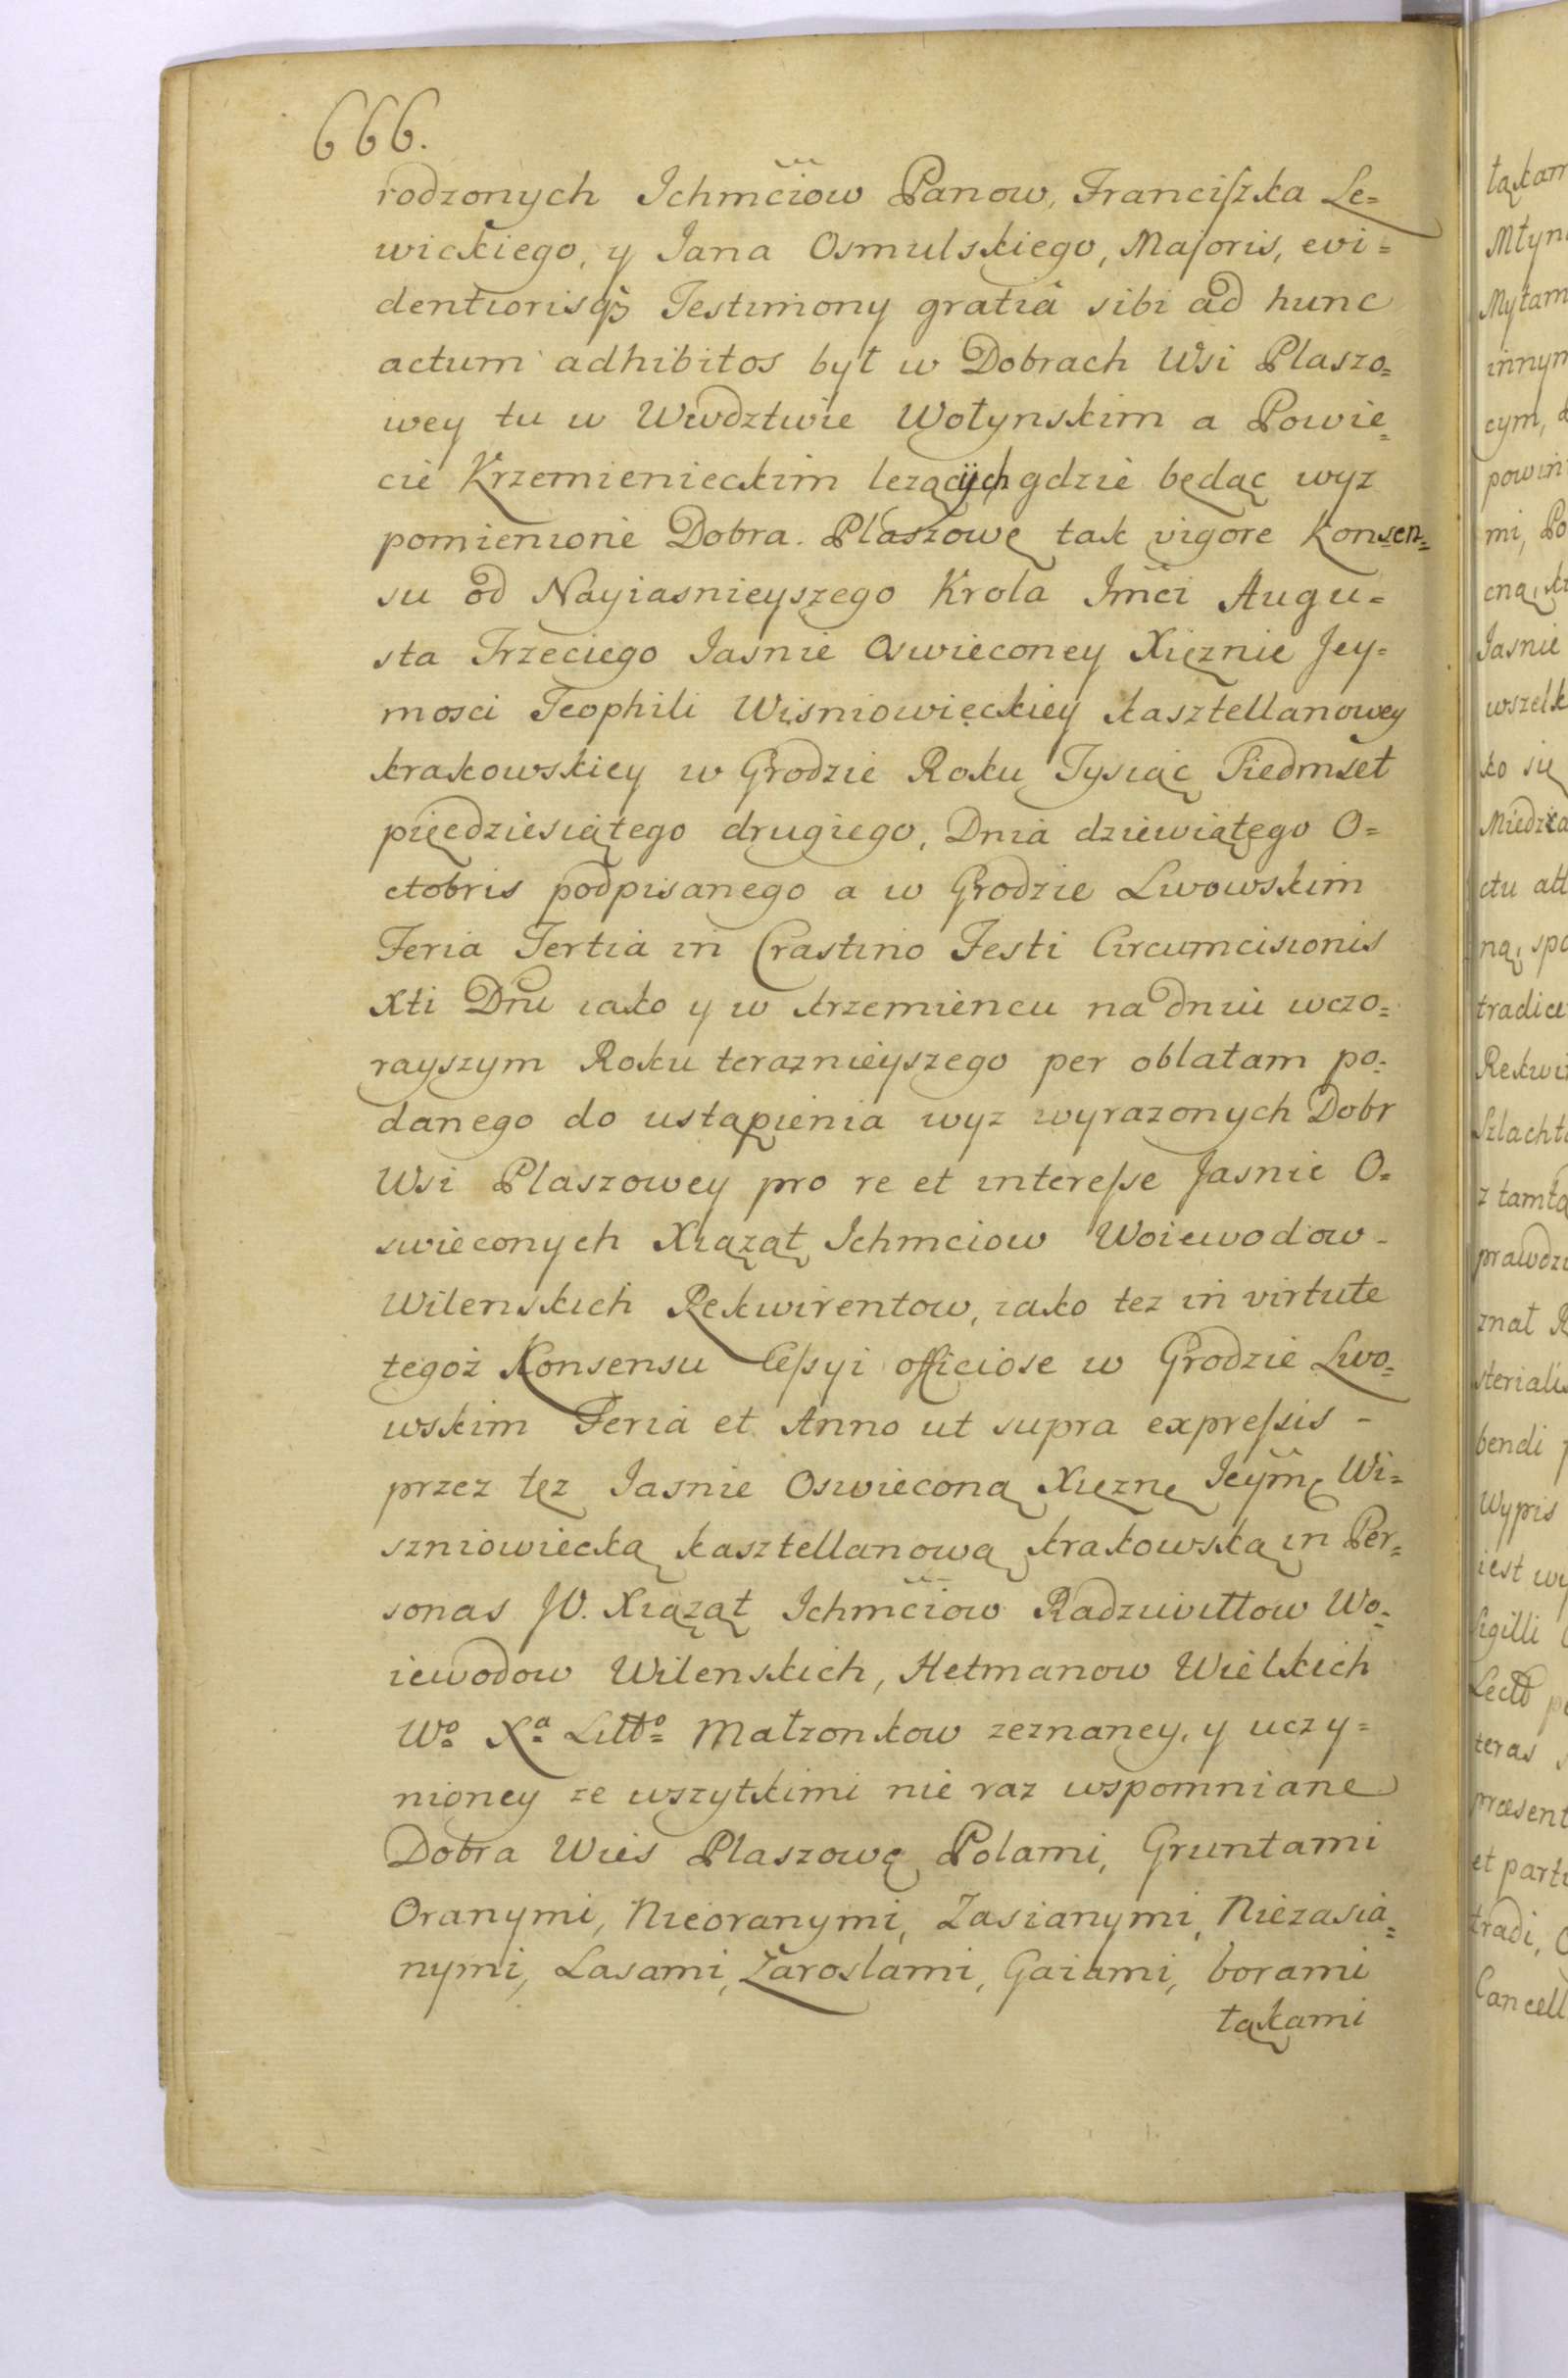 666.
rodzonych Ichmciow Panow, Franciszka Le=
wickiego, y Jana Osmulskiego, Majoris, evi=
dentiorisq3 Testimony gratiâ sibi ad hunc
actum adhibitos był w Dobrach Wsi Plaszo=
wey tu w Wwdztwie Wołynskim a Powie=
cie Krzemienieckim lezących gdzie będąc wyz
pomienione Dobra. Plaszowę tak vigore Konsen=
su od Nayiasnieyszego Krola Imci Augu=
sta Trzeciego Jasnie Oswieconey Xięznie Jey=
mosci Teophili Wisniowięckiey Kasztellanowey
krakowskiey w Grodzie Roku Tysiąc Siedmset
pięcdziesiątego drugiego, Dnia dziewiątego O=
ctobris podpisanego a w Grodzie Lwowskim
Feria Tertia in Crastino Festi Circumcisionis
Xti Dni iako y w Krzemiencu na dniu wczo=
rayszym Roku teraznieyszego per oblatam po=
danego do ustąpienia wyz wyrazonych Dobr
Wsi Plaszowey pro re et interesse Jasnie O=
swieconych Xiąząt Ichmciow Woiewodow-
Wilenskich Rekwirentow, iako tez in virtute
tegoż Konsensu Cessyi officiose w Grodzie Lwo=
wskim Feria et Anno ut supra expressis -
przez tęz Jasnie Oswieconą Xięznę Jeymę Wi=
szniowiecką kasztellanową krakowską in Per=
sonas JO. Xiąząt Ichmciow Radziwiłłow Wo=
iewodow Wilenskich, Hetmanow Wielkich
Wo Xa Litto Małzonkow zeznaney, y uczy=
nioney ze wszytkimi nie raz wspomniane
Dobra Wies Plaszowę Polami, Gruntami
Oranymi, Nieoranymi, Zasianymi, Niezasia=
nymi, Lasami, Zaroslami, Gaiami, borami
łąkami
łąkam
Młyn
Mytam
innym
cym,
powin
mi, Po
cną,
Jasnie
wszelk
ko się
Miedz
ctu att
ną, spo
tradice
Rekwi
Szlacht
z tamtą
prawdz
znał R
steriali
bendi
Wypis
iest wy
Sigilli
Lectt
teras
præsent
et parti
tradi,
Cancell